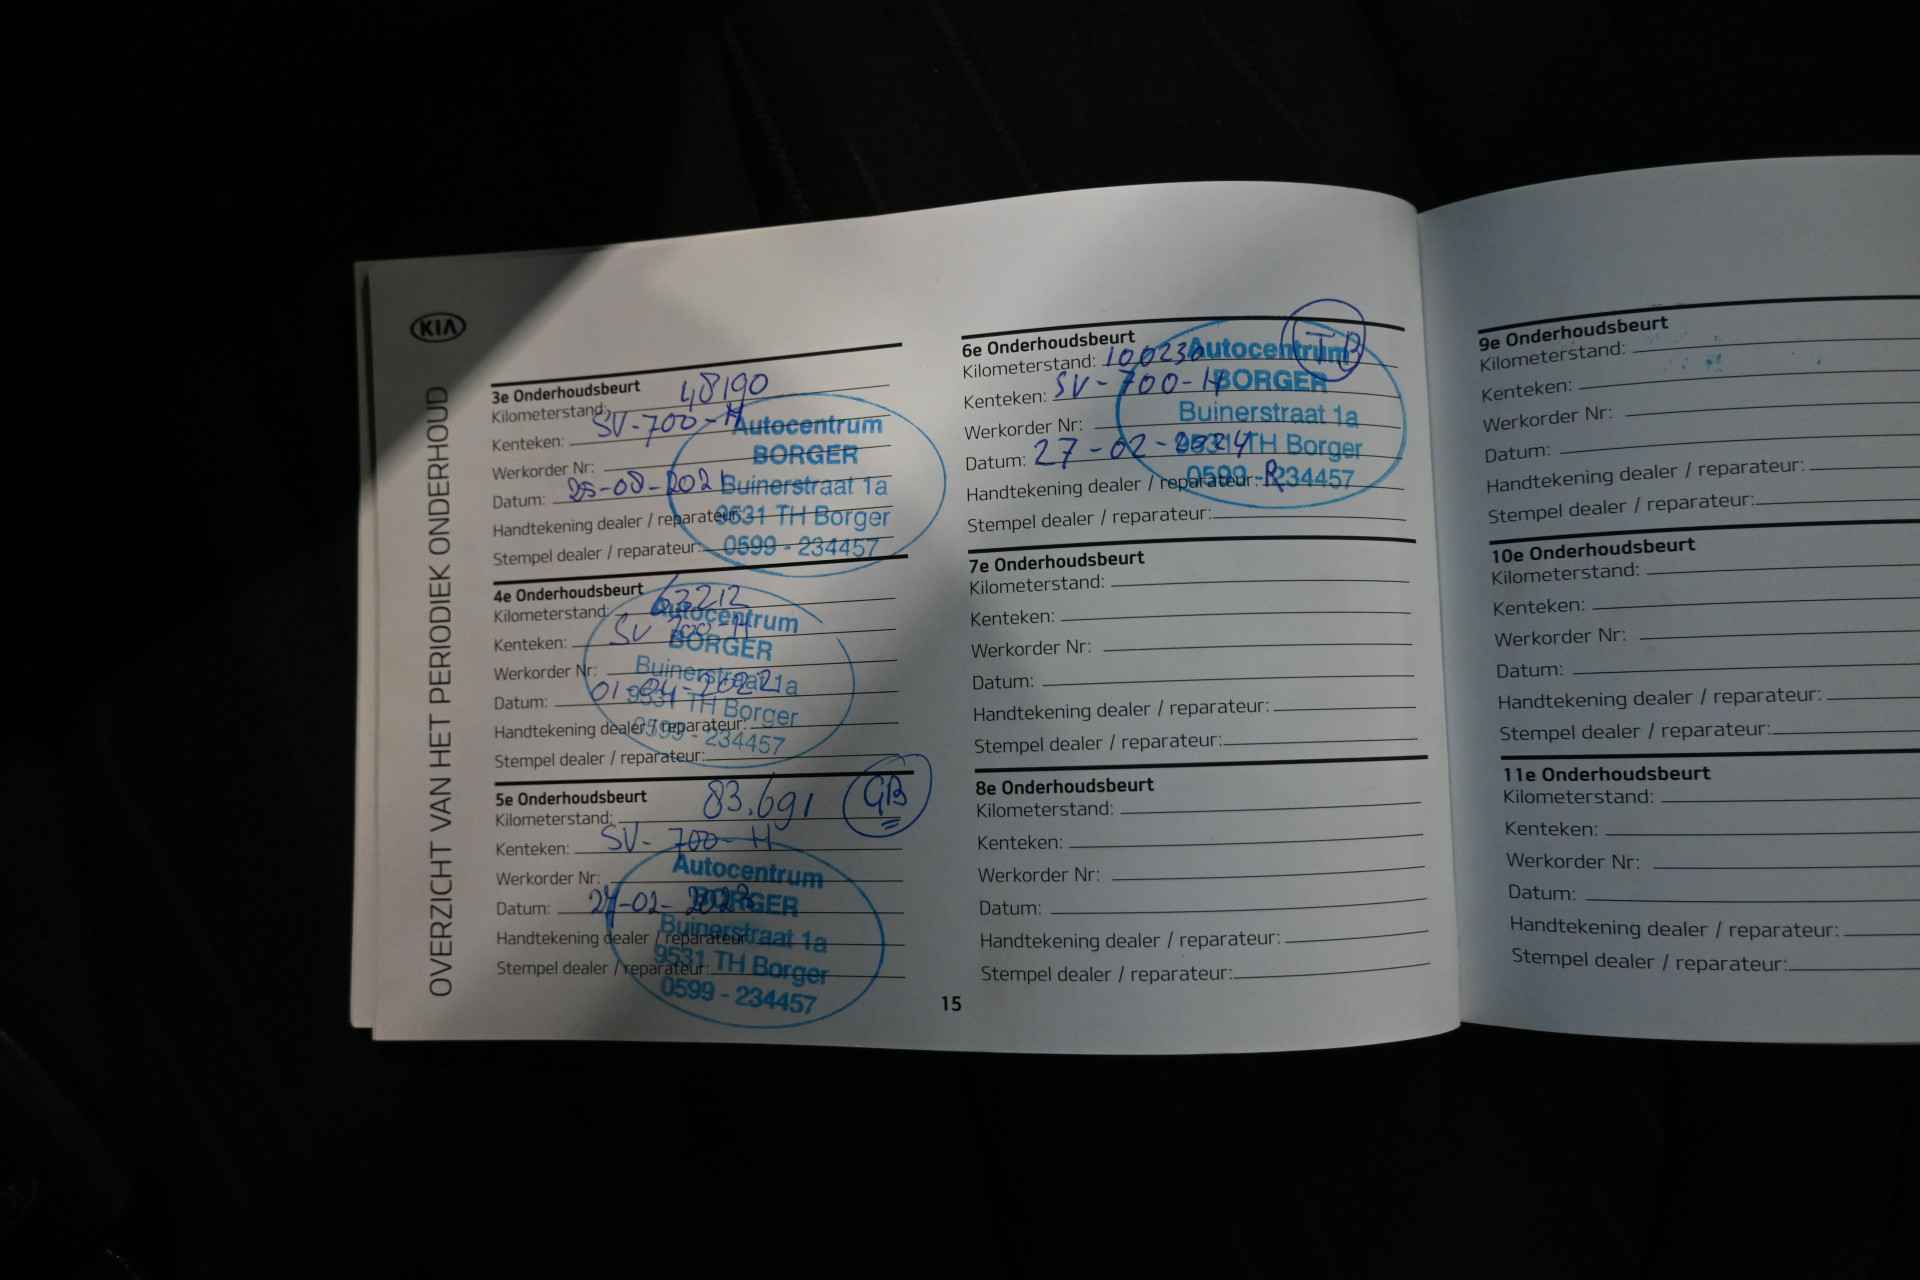 KIA
OVERZICHT VAN HET PERIODIEK ONDERHOUD
3e Onderhoudsbeurt
Kilometerstand: 48190
Kenteken: SV-700-H
Werkorder Nr:
Datum: 25-08-2021
Handtekening dealer / reparateur:
Stempel dealer / reparateur:
Autocentrum
BORGER
Buinerstraat 1a
9531 TH Borger
0599 - 234457
4e Onderhoudsbeurt
Kilometerstand: 63212
Kenteken: SV-700-H
Werkorder Nr:
Datum: 01-04-2022
Handtekening dealer / reparateur:
Stempel dealer / reparateur:
Autocentrum
BORGER
Buinerstraat 1a
9531 TH Borger
0599 - 234457
5e Onderhoudsbeurt
Kilometerstand: 83.691
GB
Kenteken: SV-700-H
Werkorder Nr:
Datum: 27-02-2023
Handtekening dealer / reparateur:
Stempel dealer / reparateur:
Autocentrum
BORGER
Buinerstraat 1a
9531 TH Borger
0599 - 234457
6e Onderhoudsbeurt
Kilometerstand: 100236
TB
Kenteken: SV-700-H
Werkorder Nr:
Datum: 27-02-2024
Handtekening dealer / reparateur:
Stempel dealer / reparateur:
Autocentrum
BORGER
Buinerstraat 1a
9531 TH Borger
0599 - 234457
7e Onderhoudsbeurt
Kilometerstand:
Kenteken:
Werkorder Nr:
Datum:
Handtekening dealer / reparateur:
Stempel dealer / reparateur:
8e Onderhoudsbeurt
Kilometerstand:
Kenteken:
Werkorder Nr:
Datum:
Handtekening dealer / reparateur:
Stempel dealer / reparateur:
15
9e Onderhoudsbeurt
Kilometerstand:
Kenteken:
Werkorder Nr:
Datum:
Handtekening dealer / reparateur:
Stempel dealer / reparateur:
10e Onderhoudsbeurt
Kilometerstand:
Kenteken:
Werkorder Nr:
Datum:
Handtekening dealer / reparateur:
Stempel dealer / reparateur:
11e Onderhoudsbeurt
Kilometerstand:
Kenteken:
Werkorder Nr:
Datum:
Handtekening dealer / reparateur:
Stempel dealer / reparateur: